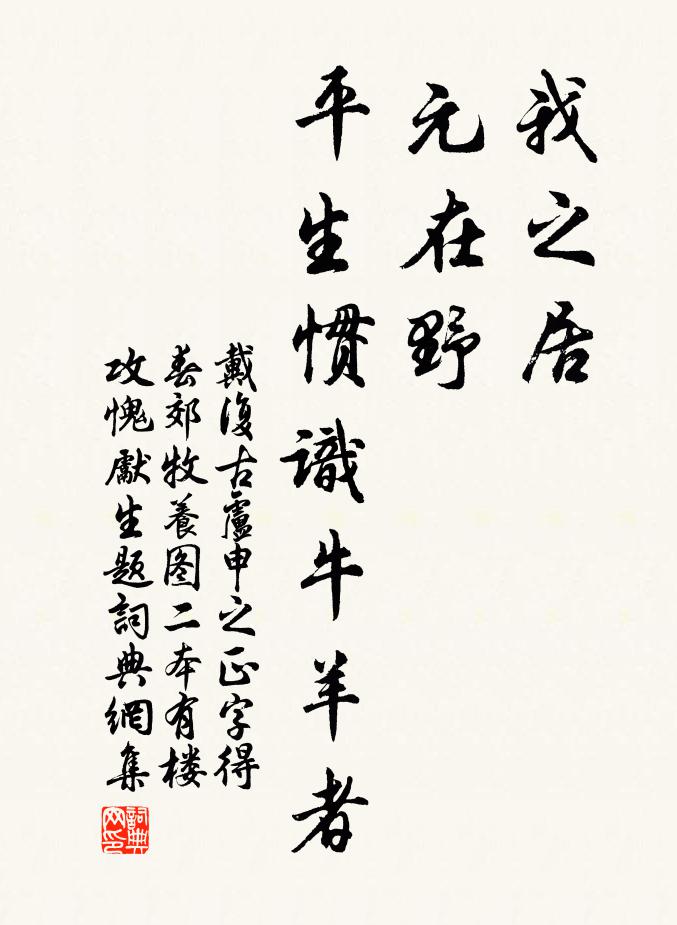 我之居
元在野
平生慣識牛羊者
戴復古盧申之正字得
春郊牧養图二本有楼
攻愧獻生題詞典網集
詞典网印